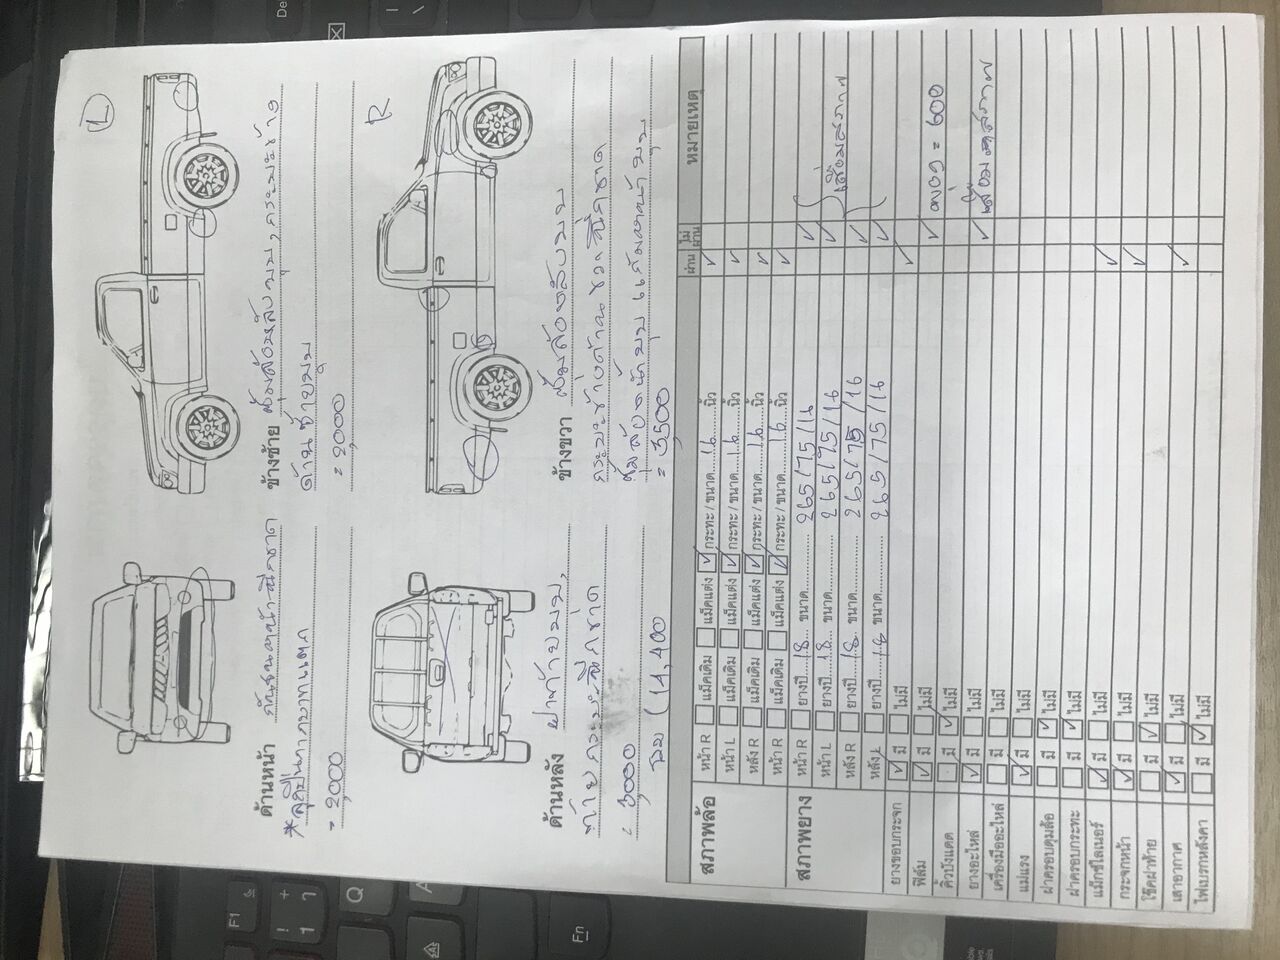 L
R
ด้านหน้า กันชนหน้าสีขาด
= 2000
ข้างซ้าย ซุ้มล้อหลังบุบ, กระบะข้าง
ด้านซ้ายบุบ
= 2,000
ด้านหลัง ฝาท้ายบุบ,
ท้ายกระบะสีขาด
= 3,000
รวม (14,400
ข้างขวา ซุ้มล้อหลังบุบ
กระบะข้างด้านขวาสีขาด
ซุ้มล้อหน้าบุบ แก้มหน้าบุบ
= 3,500
ผ่าน ไม่ผ่าน หมายเหตุ
สภาพล้อ หน้า R แม็คเดิม แม็คแต่ง ✓ กระทะ / ขนาด 16 นิ้ว ✓
หน้า L แม็คเดิม แม็คแต่ง ✓ กระทะ / ขนาด 16 นิ้ว ✓
หลัง R แม็คเดิม แม็คแต่ง ✓ กระทะ / ขนาด 16 นิ้ว ✓
หน้า R แม็คเดิม แม็คแต่ง ✓ กระทะ / ขนาด 16 นิ้ว ✓
สภาพยาง หน้า R ยางปี 18 ขนาด 265/75/16 ✓
หน้า L ยางปี 18 ขนาด 265/75/16 ✓ เสื่อมสภาพ
หลัง R ยางปี 18 ขนาด 265/75/16 ✓
หลัง L ยางปี 18 ขนาด 265/75/16 ✓
ยางขอบกระจก ✓ มี ไม่มี ✓
ฟิล์ม ✓ มี ไม่มี ✓ = 600
คิ้วบังแดด มี ✓ ไม่มี
ยางอะไหล่ ✓ มี ไม่มี ✓ เสื่อมสภาพ
เครื่องมืออะไหล่ มี ไม่มี
แม่แรง ✓ มี ไม่มี
ฝาครอบดุมล้อ มี ✓ ไม่มี
ฝาครอบกระทะ มี ✓ ไม่มี
แม็กซ์ไลเนอร์ ✓ มี ไม่มี ✓
กระจกหน้า ✓ มี ไม่มี ✓
โช๊คฝาท้าย มี ✓ ไม่มี
เสาอากาศ ✓ มี ไม่มี ✓
ไฟเบรกหลังคา มี ✓ ไม่มี
F1
Q
A
Fn